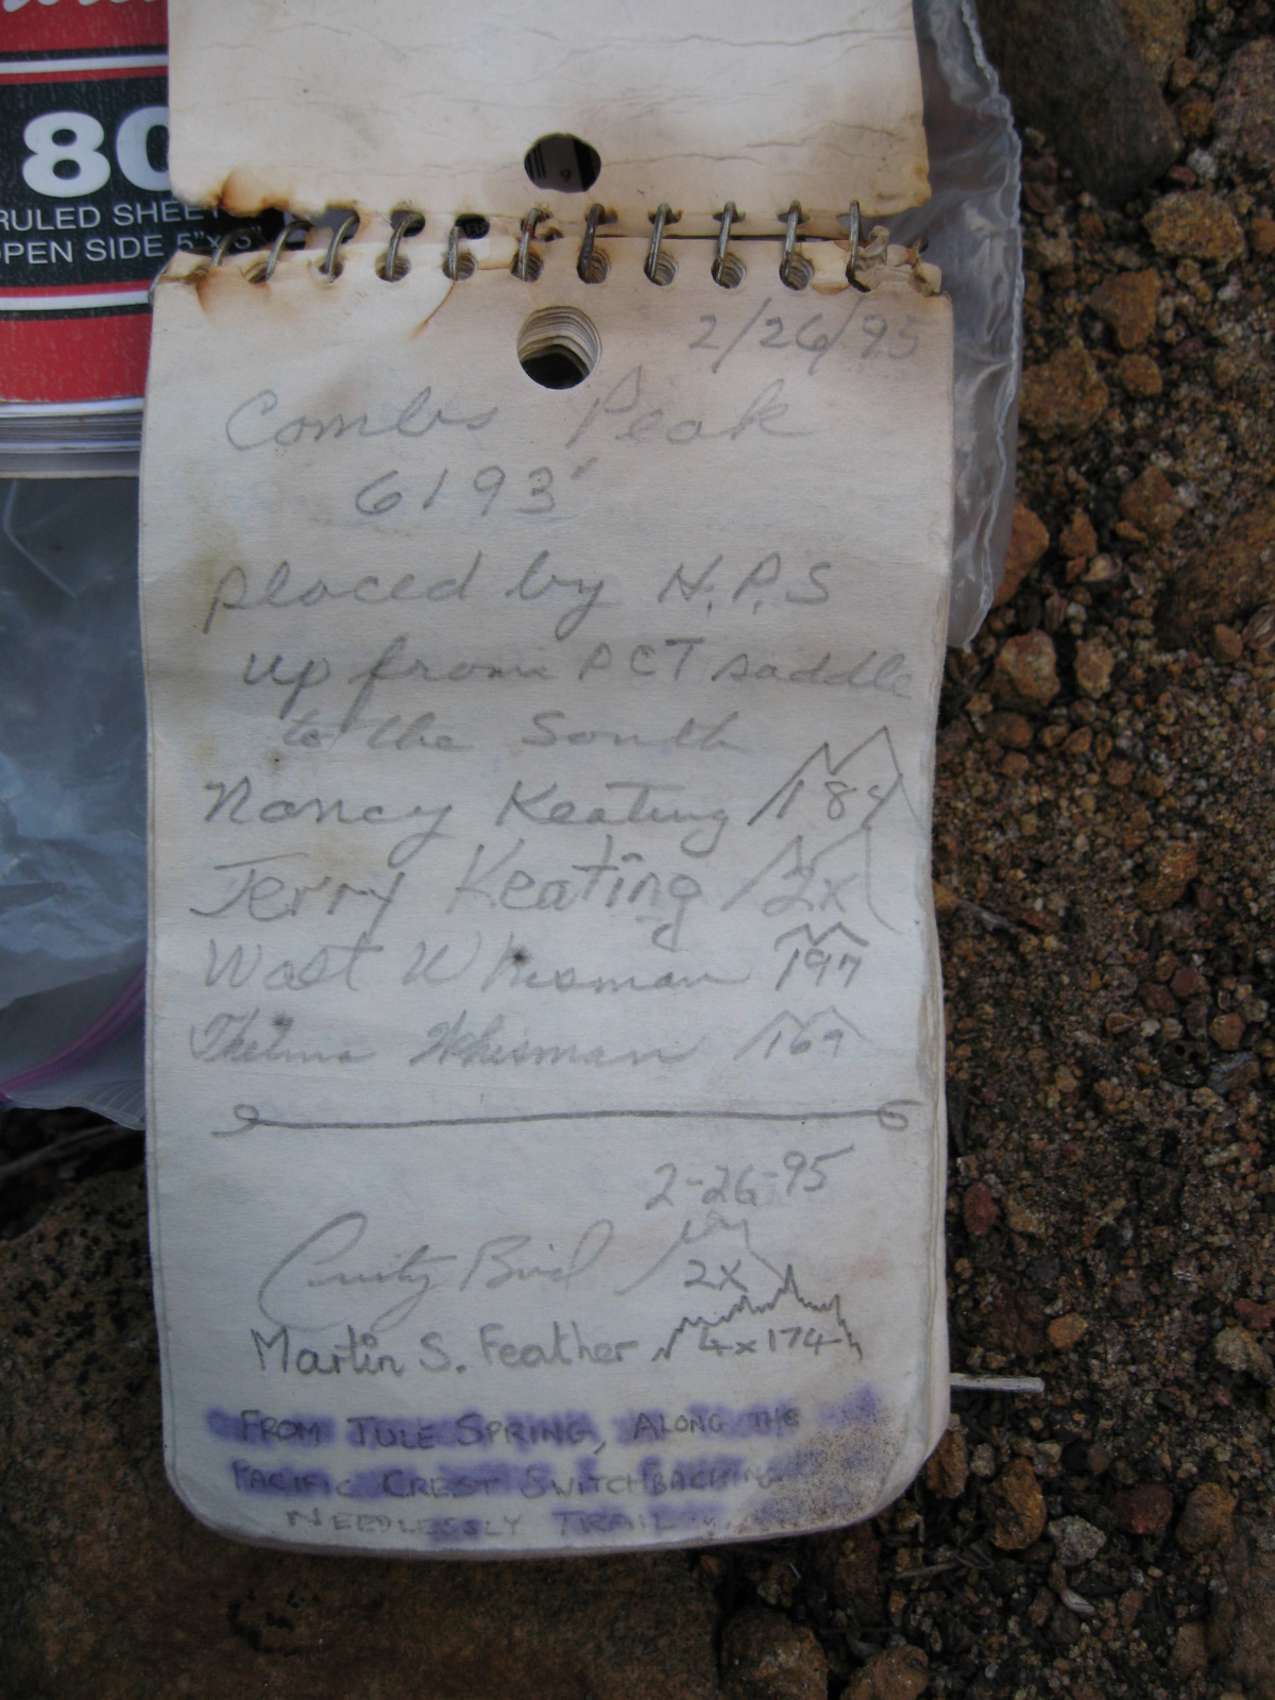 80
RULED SHEET
OPEN SIDE 5"x 3"
2/26/95
Combs Peak
6193'
placed by H.P.S
up from PCT saddle
to the South
Nancy Keating 189
Jerry Keating 2x
Walt Whisman 197
Thelma Whisman 169
2-26-95
Bird
2x
Martin S. Feather 4x174
FROM TULE SPRING, ALONG THE
PACIFIC CREST SWITCHBACKING
NEEDLESSLY TRAIL